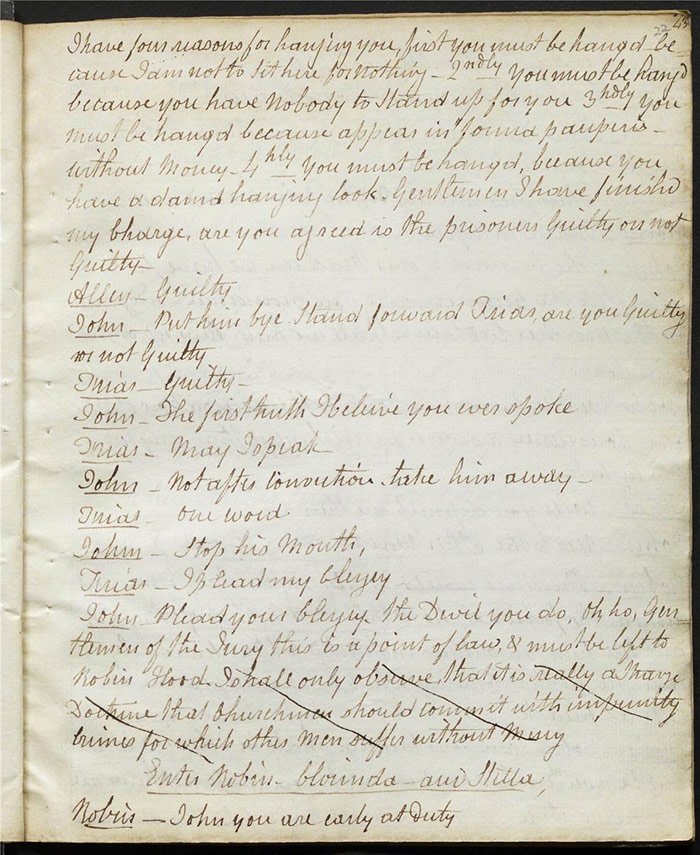 22 43
I have four reasons for hanging you, first you must be hang'd be
cause I am not to sit here for Nothing – 2ndly You must be hang'd
because you have Nobody to Stand up for you 3hdly you
must be hang'd because appears in forma pauperis –
without Money – 4hly You must be hang'd, because you
have a damd hanging look. Gentlemen I have finish'd
my Charge, are you agreed is the prisoners Guilty or not
Guilty –
Alley – Guilty
John – Put him bye Stand forward Frias, are you Guilty
or not Guilty
Frias – Guilty –
John – The first truth I beleive you ever spoke
Frias – May I speak –
John – Not after Conviction take him away –
Frias – One word
John – Stop his Mouth,
Frias – I plead my Clergy –
John – Plead your Clergy the Devil you do, Oh, ho, Gen
tlemen of the Jury this is a point of law, & must be left to
Robin Hood. I shall only observe, that it is really a Strange
Doctrine that Churchmen should commit with impunity
Crimes for which other Men suffer without Mercy
Enter Robin – Clorinda – and Stella,
Robin – John you are early at Duty